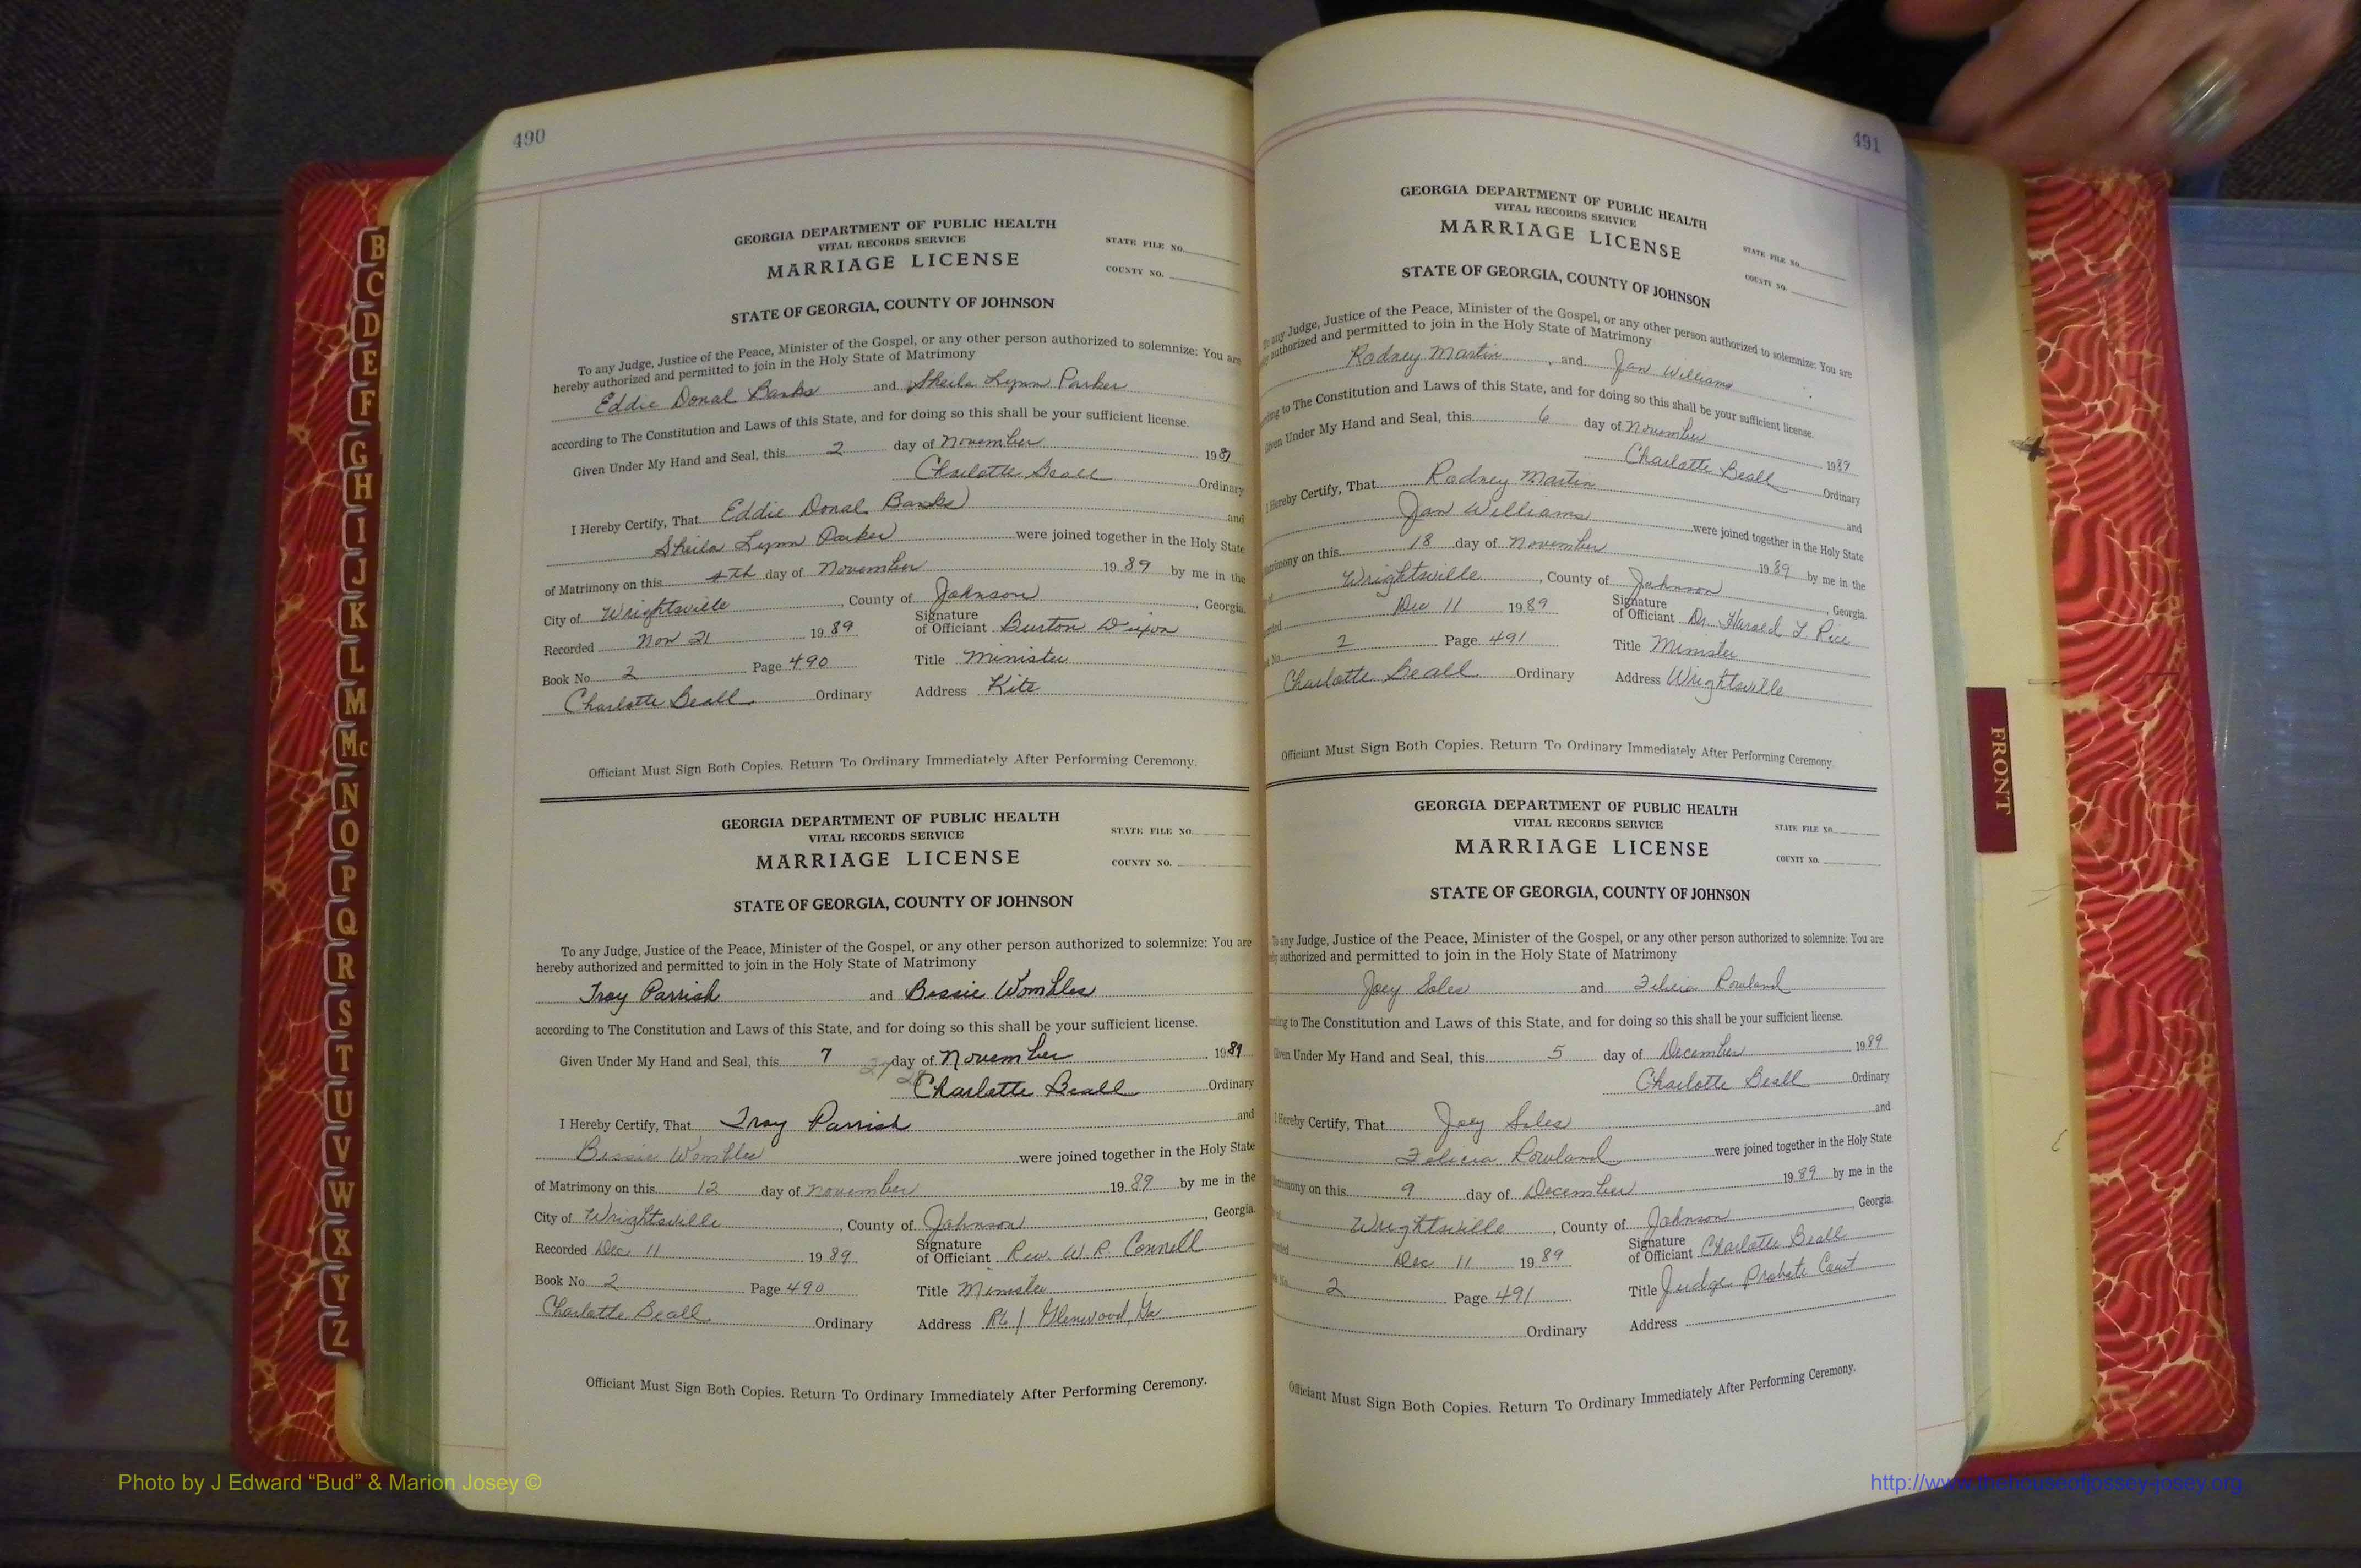 490
GEORGIA DEPARTMENT OF PUBLIC HEALTH
VITAL RECORDS SERVICE
MARRIAGE LICENSE
STATE FILE NO.
COUNTY NO.
STATE OF GEORGIA, COUNTY OF JOHNSON
To any Judge, Justice of the Peace, Minister of the Gospel, or any other person authorized to solemnize: You are
hereby authorized and permitted to join in the Holy State of Matrimony
Eddie Donal Banks and Sheila Lynn Parker
according to The Constitution and Laws of this State, and for doing so this shall be your sufficient license.
Given Under My Hand and Seal, this 2 day of November 1989
Charlotte Beall Ordinary
I Hereby Certify, That Eddie Donal Banks and
Sheila Lynn Parker were joined together in the Holy State
of Matrimony on this 4th day of November 1989 by me in the
City of Wrightsville, County of Johnson, Georgia.
Recorded Nov 21 1989 Signature of Officiant Burton
Book No. 2 Page 490 Title Minister
Charlotte Beall Ordinary Address Kite
Officiant Must Sign Both Copies. Return To Ordinary Immediately After Performing Ceremony.
GEORGIA DEPARTMENT OF PUBLIC HEALTH
VITAL RECORDS SERVICE
MARRIAGE LICENSE
STATE FILE NO.
COUNTY NO.
STATE OF GEORGIA, COUNTY OF JOHNSON
To any Judge, Justice of the Peace, Minister of the Gospel, or any other person authorized to solemnize: You are
hereby authorized and permitted to join in the Holy State of Matrimony
Troy Parrish and Bessie Wombles
according to The Constitution and Laws of this State, and for doing so this shall be your sufficient license.
Given Under My Hand and Seal, this 7 day of November 1989
Charlotte Beall Ordinary
I Hereby Certify, That Troy Parrish and
Bessie Wombles were joined together in the Holy State
of Matrimony on this 12 day of November 1989 by me in the
City of Wrightsville, County of Johnson, Georgia.
Recorded Dec 11 1989 Signature of Officiant Rev. W. R. Connell
Book No. 2 Page 490 Title Minister
Charlotte Beall Ordinary Address Rt 1 Glenwood, Ga
Officiant Must Sign Both Copies. Return To Ordinary Immediately After Performing Ceremony.
491
GEORGIA DEPARTMENT OF PUBLIC HEALTH
VITAL RECORDS SERVICE
MARRIAGE LICENSE
STATE FILE NO.
COUNTY NO.
STATE OF GEORGIA, COUNTY OF JOHNSON
To any Judge, Justice of the Peace, Minister of the Gospel, or any other person authorized to solemnize: You are
authorized and permitted to join in the Holy State of Matrimony
Rodney Martin, and Jan Williams
to The Constitution and Laws of this State, and for doing so this shall be your sufficient license.
Given Under My Hand and Seal, this 6 day of November 1989
Charlotte Beall Ordinary
I Hereby Certify, That Rodney Martin and
Jan Williams were joined together in the Holy State
on this 18 day of November 1989 by me in the
Wrightsville, County of Johnson, Georgia.
Dec 11 1989 Signature of Officiant Dr. Harold L. Rice
2 Page 491 Title Minister
Charlotte Beall Ordinary Address Wrightsville
Officiant Must Sign Both Copies. Return To Ordinary Immediately After Performing Ceremony.
GEORGIA DEPARTMENT OF PUBLIC HEALTH
VITAL RECORDS SERVICE
MARRIAGE LICENSE
STATE FILE NO.
COUNTY NO.
STATE OF GEORGIA, COUNTY OF JOHNSON
To any Judge, Justice of the Peace, Minister of the Gospel, or any other person authorized to solemnize: You are
authorized and permitted to join in the Holy State of Matrimony
Joey Soles and Felicia Rowland
to The Constitution and Laws of this State, and for doing so this shall be your sufficient license.
Given Under My Hand and Seal, this 5 day of December 1989
Charlotte Beall Ordinary
I Hereby Certify, That Joey Soles and
Felicia Rowland were joined together in the Holy State
on this 9 day of December 1989 by me in the
Wrightsville, County of Johnson, Georgia.
Dec 11 1989 Signature of Officiant Charlotte Beall
2 Page 491 Title Judge Probate Court
Ordinary Address
Officiant Must Sign Both Copies. Return To Ordinary Immediately After Performing Ceremony.
B
C
D
E
F
G
H
I
J
K
L
M
Mc
N
O
P
Q
R
S
T
U
V
W
X
Y
Z
FRONT
Photo by J Edward “Bud” & Marion Josey ©
http://www.thehouseofjossey-josey.org